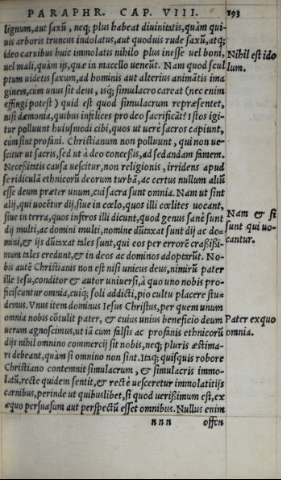 PARAPHR. CAP. VIII. 193
lignum, aut saxū, neq; plus habeat diuinitatis, quàm qui-
uis arboris truncus indolatus, aut quoduis rude saxū, atq;
ideo carnibus huic immolatis nihilo plus inesse uel boni,
uel mali, quàm ijs, quæ in macello ueneūt. Nam quod scul
ptum uidetis saxum, ad hominis aut alterius animātis ima
ginem, cum unus sit deus, isq; simulacro careat (nec enim
effingi potest) quid est quod simulacrum repræsentet,
nisi dæmonia, quibus infelices pro deo sacrificāt? Istos igi-
tur polluunt huiusmodi cibi, quos ut uerè sacros capiunt,
cum sint profani. Christianum non polluunt, qui non ue-
scitur ut sacris, sed ut à deo concessis, ad sedandam famem.
Necessitatis causa uescitur, non religionis, irridens apud
se ridiculā ethnicorū deorum turbā, ac certus nullum aliū
esse deum præter unum, cui sacra sunt omnia. Nam ut sint
alij, qui uocētur dij, siue in cœlo, quos illi cœlites uocant,
siue in terra, quos inferos illi dicunt, quod genus sanè sunt
dij multi, ac domini multi, nomine dūtaxat sunt dij ac do-
mini, & ijs dūtaxat tales sunt, qui eos per errorē crassissi-
mum tales credunt, & in deos ac dominos adoptārūt. No-
bis autē Christianis non est nisi unicus deus, nimirū pater
ille Iesu, conditor & autor uniuersi, à quo uno nobis pro-
ficiscuntur omnia, cuiq; soli addicti, pio cultu placere stu-
demus. Vnus item dominus Iesus Christus, per quem unum
omnia nobis cōtulit pater, & cuius unius beneficio deum
uerum agnoscimus, ut iā cum falsis ac profanis ethnicorū
dijs nihil omnino commercij sit nobis, neq; pluris æstima-
ri debeant, quàm si omnino non sint. Itaq; quisquis robore
Christiano contemnit simulacrum, & simulacris immo-
latū, rectè quidem sentit, & rectè uesceretur immolatitijs
carnibus, perinde ut quibuslibet, si quod uerissimum est, ex
æquo persuasum aut perspectū esset omnibus. Nullus enim
nnn offen
Nihil est ido
lum.
Nam & si
sunt qui uo-
cantur.
Pater ex quo
omnia.